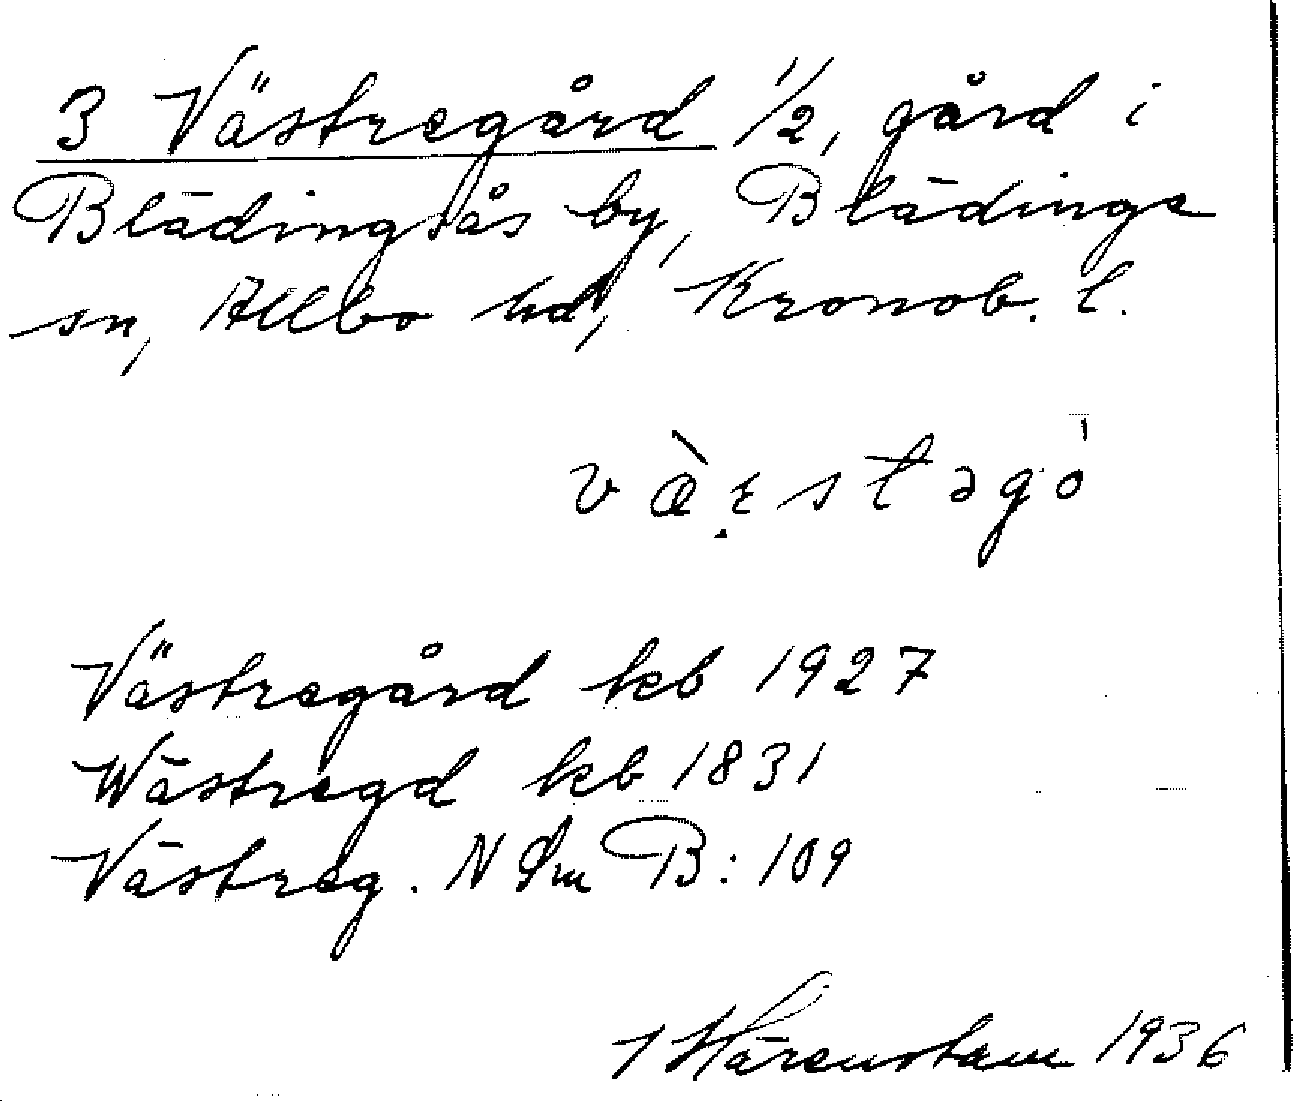 3 Västregård 1/2, gård i
Blädingsås by, Blädinge
sn, Allbo hd, Kronob. l.
væ̀ɽstəgó
Västregård kb 1927
Wästregd kb 1831
Västreg. N Om B: 109
Härenstam 1936